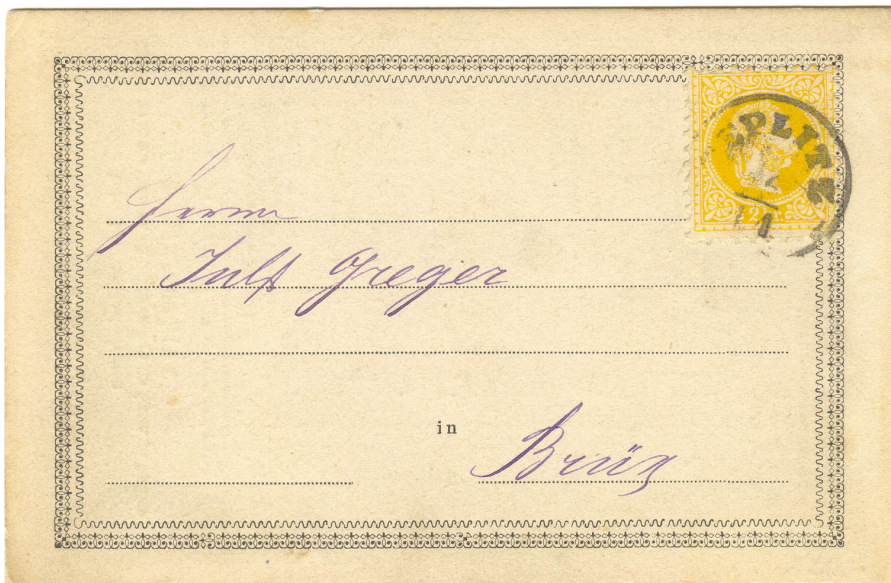 TEPLITZ
2
Herrn
Greger
in
Brüx